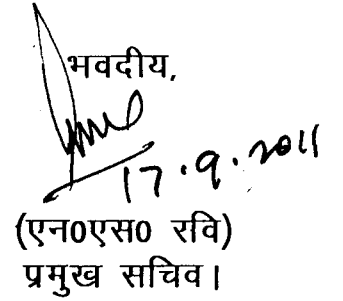 भवदीय,
17.9.2011
(एन0एस0 रवि)
प्रमुख सचिव।